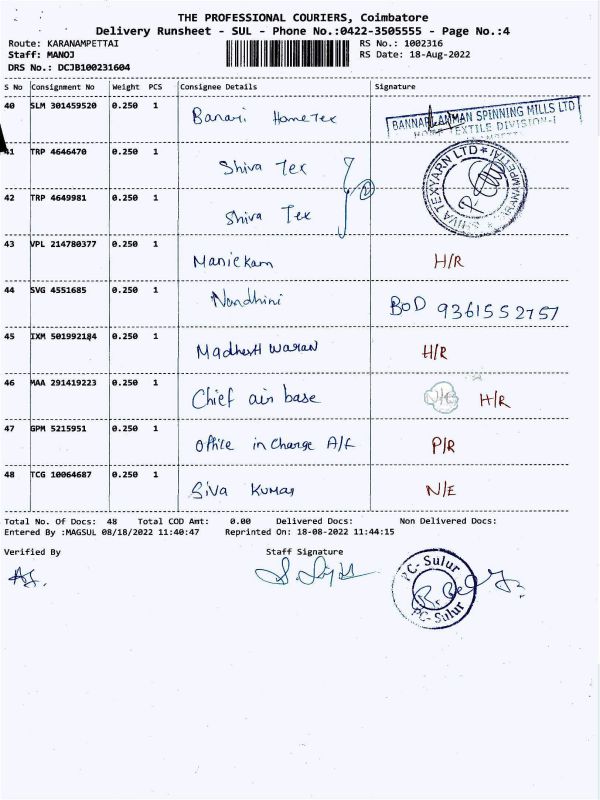 THE PROFESSIONAL COURIERS, Coimbatore
Delivery Runsheet - SUL - Phone No.:0422-3505555 - Page No.:4
Route: KARANAMPETTAI RS No.: 1002316
Staff: MANOJ RS Date: 18-Aug-2022
DRS No.: DCJB100231604
S No Consignment No Weight PCS Consignee Details Signature
40 SLM 301459520 0.250 1 Banari HomeTex
BANNARI AMMAN SPINNING MILLS LTD
HOME TEXTILE DIVISION-I
41 TRP 4646470 0.250 1 Shiva Tex
SHIVA TEXYARN LTD * KARANAMPETTAI
42 TRP 4649981 0.250 1 Shiva Tex
43 VPL 214780377 0.250 1 Manickam H/R
44 SVG 4551685 0.250 1 Nandhini BOD 9361552757
45 IXM 501992184 0.250 1 Madhesh waran H/R
46 MAA 291419223 0.250 1 Chief air base H/R
47 GPM 5215951 0.250 1 Office in Charge A/F P/R
48 TCG 10064687 0.250 1 Siva Kumar N/E
Total No. Of Docs: 48 Total COD Amt: 0.00 Delivered Docs: Non Delivered Docs:
Entered By :MAGSUL 08/18/2022 11:40:47 Reprinted On: 18-08-2022 11:44:15
Verified By Staff Signature
PC- Sulur
PC- Sulur